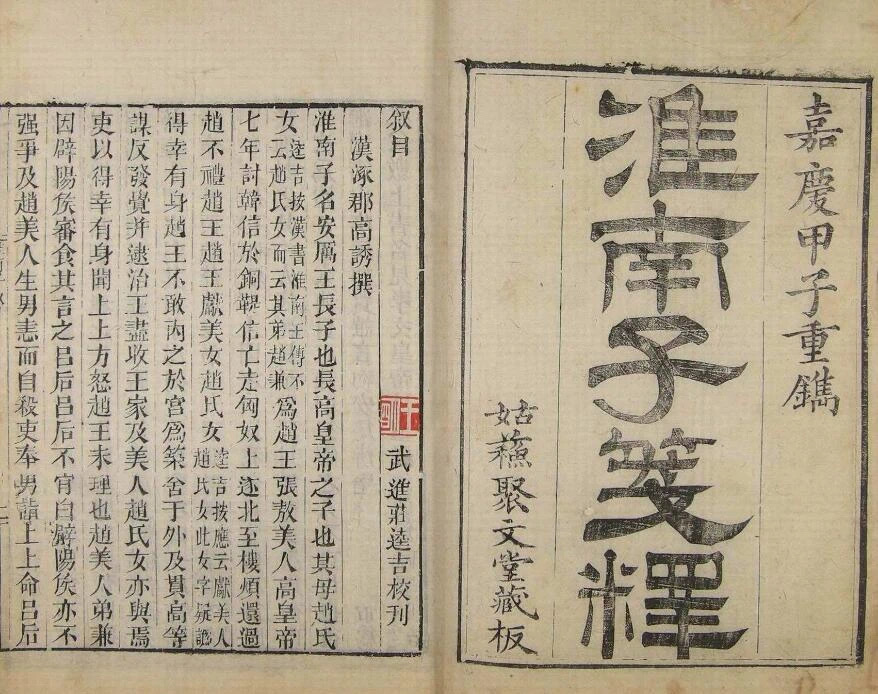 嘉慶甲子重鐫
淮南子箋釋
姑蘓聚文堂藏板
叙目
漢涿郡高誘撰
武進莊逵吉校刊
淮南子名安厲王長子也長高皇帝之子也其母趙氏
女逵吉按漢書淮南王傳不云趙氏女而云其弟趙兼爲趙王張敖美人高皇帝
七年討韓信於銅鞮信亡走匈奴上遂北至樓煩還過
趙不禮趙王趙王獻美女趙氏女逵吉按應云獻美人趙氏女此女字疑譌
得幸有身趙王不敢內之於宮爲築舍于外及貫高等
謀反發覺并逮治王盡收王家及美人趙氏女亦與焉
吏以得幸有身聞上上方怒趙王未理也趙美人弟兼
因辟陽侯審食其言之呂后呂后不肯白辟陽侯亦不
强爭及趙美人生男恚而自殺吏奉男詣上上命呂后